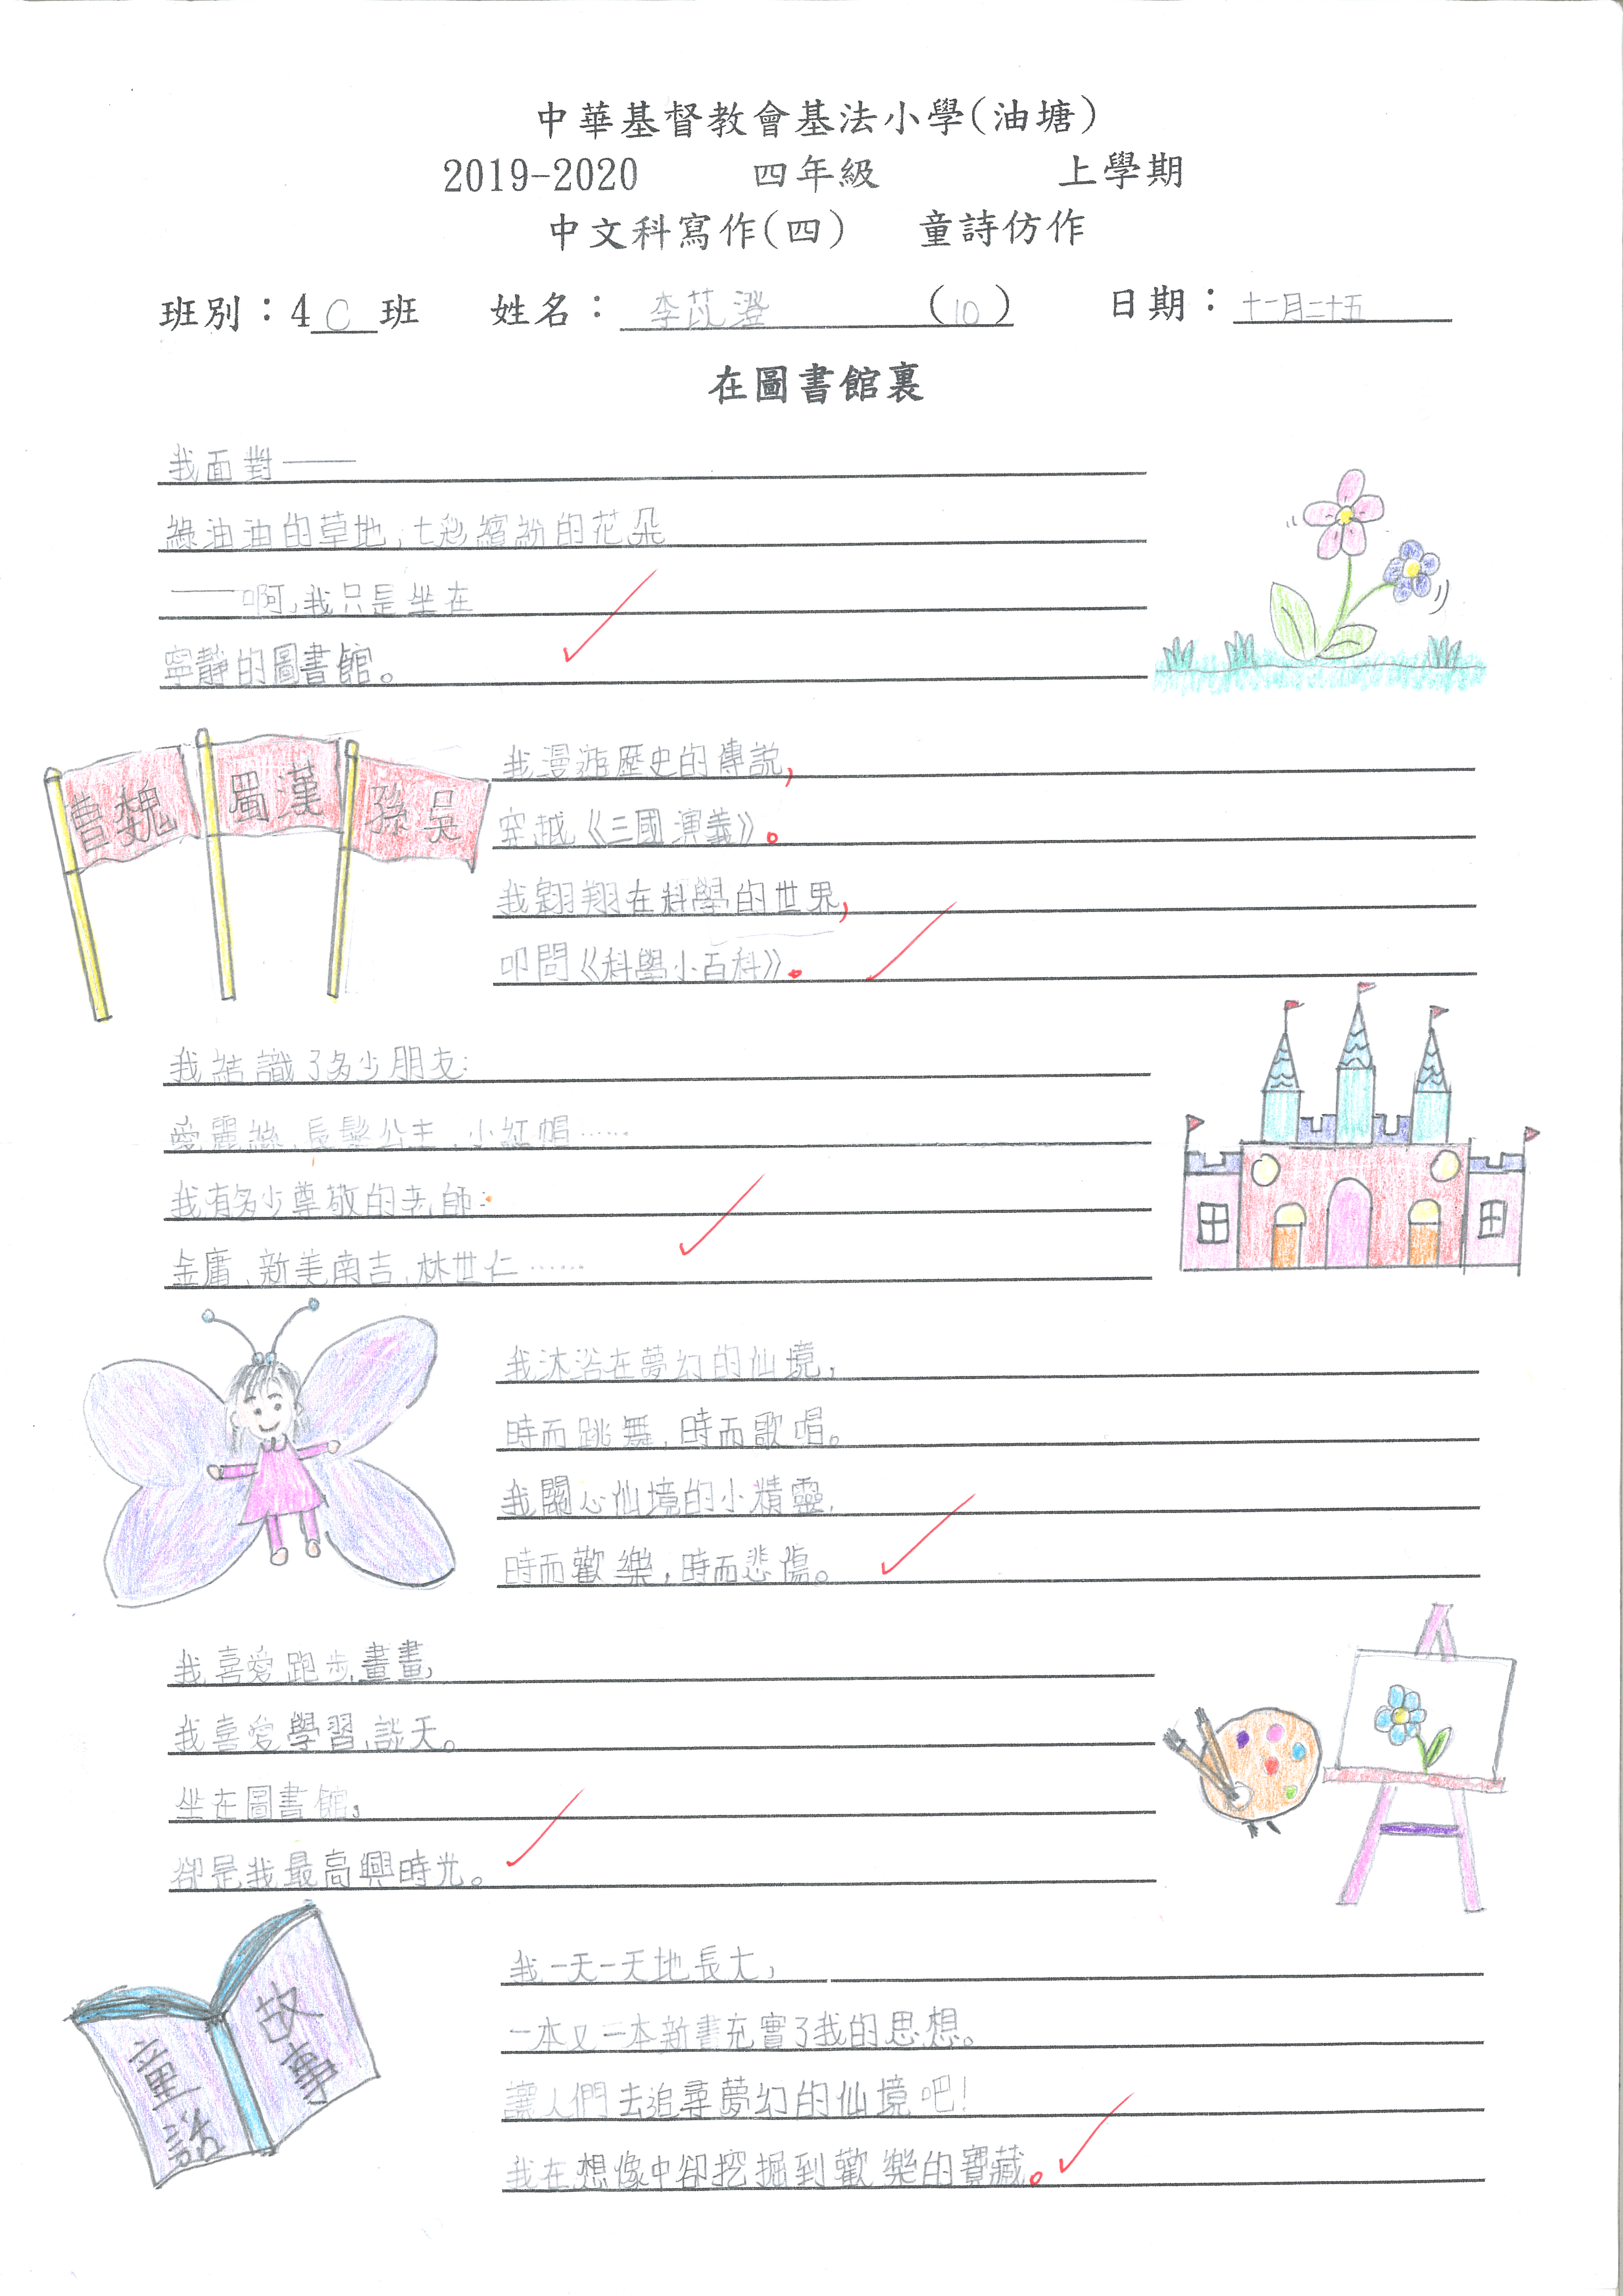 中華基督教會基法小學(油塘)
2019-2020 四年級 上學期
中文科寫作(四) 童詩仿作
班別：4 C 班 姓名： 李芘澄 (10) 日期： 十一月二十五
在圖書館裏
我面對——
綠油油的草地，七彩繽紛的花朵
——啊，我只是坐在
寧靜的圖書館。
曹魏 蜀漢 孫吳
我漫遊歷史的傳說，
穿越《三國演義》。
我翱翔在科學的世界，
叩問《科學小百科》。
我結識了多少朋友：
愛麗絲、長髮公主、小紅帽……
我有多少尊敬的老師：
金庸、新美南吉、林世仁……
我沐浴在夢幻的仙境，
時而跳舞，時而歌唱。
我關心仙境的小精靈，
時而歡樂，時而悲傷。
我喜愛跑步、畫畫，
我喜愛學習、談天。
坐在圖書館，
卻是我最高興時光。
童話 故事
我一天一天地長大，
一本又一本新書充實了我的思想。
讓人們去追尋夢幻的仙境吧！
我在想像中卻挖掘到歡樂的寶藏。